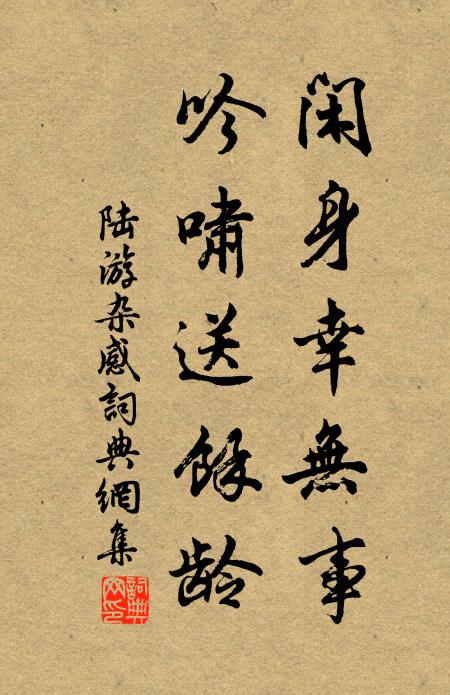 闲身幸無事
吟嘯送餘齡
陆游杂感詞典網集
詞典网印